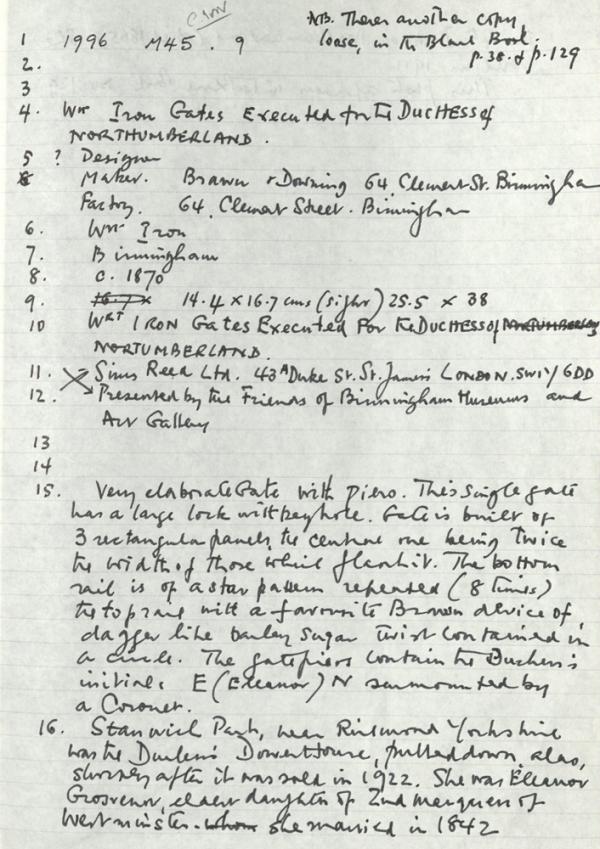 NB. There's another copy,
1 1996 M45.9 loose, in the Blank Book.
2. p.38. & p.129
3
4. Wrt Iron Gates Executed for the DUCHESS of
NORTHUMBERLAND.
5 ? Designer
Maker. Brawn & Downing 64 Clement St. Birmingham
Factory. 64 Clement Street. Birmingham
6. Wrt Iron
7. Birmingham
8. c. 1870
9. 16.7 x 14.4 x 16.7 cms (sight) 25.5 x 38
10 WRT IRON Gates Executed For the DUCHESS of NORTHUMBERLAND
NORTUMBERLAND.
11. Sims Reed Ltd. 43A Duke St. St. James's LONDON. SW1Y 6DD
12. Presented by the Friends of Birmingham Museums and
Art Gallery
13
14
15. Very elaborate Gate with piers. This single gate
has a large lock with keyhole. Gate is built of
3 rectangular panels, the central one being twice
the width of those which flank it. The bottom
rail is of a star pattern repeated (8 times)
the top rail with a favourite Brawn device of,
dagger like barley sugar twist contained in
a circle. The gatepiers contain the Duchess's
initials E (Eleanor) N surmounted by
a Coronet.
16. Stanwick Park, near Richmond Yorkshire
was the Duchess's Dower House, pulled down, also,
shortly after it was sold in 1922. She was Eleanor
Grosvenor, elder daughter of 2nd marquess of
Westminster. whom she married in 1842